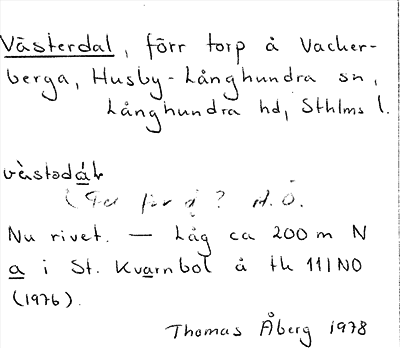 Västerdal, förr torp å Vacker-
berga, Husby-Långhundra sn,
Långhundra hd, Sthlms l.
för ? H.Ö.
Nu rivet. — Låg ca 200 m N
a i St. Kvarnbol å tk 11I NO
(1976).
Thomas Åberg 1978